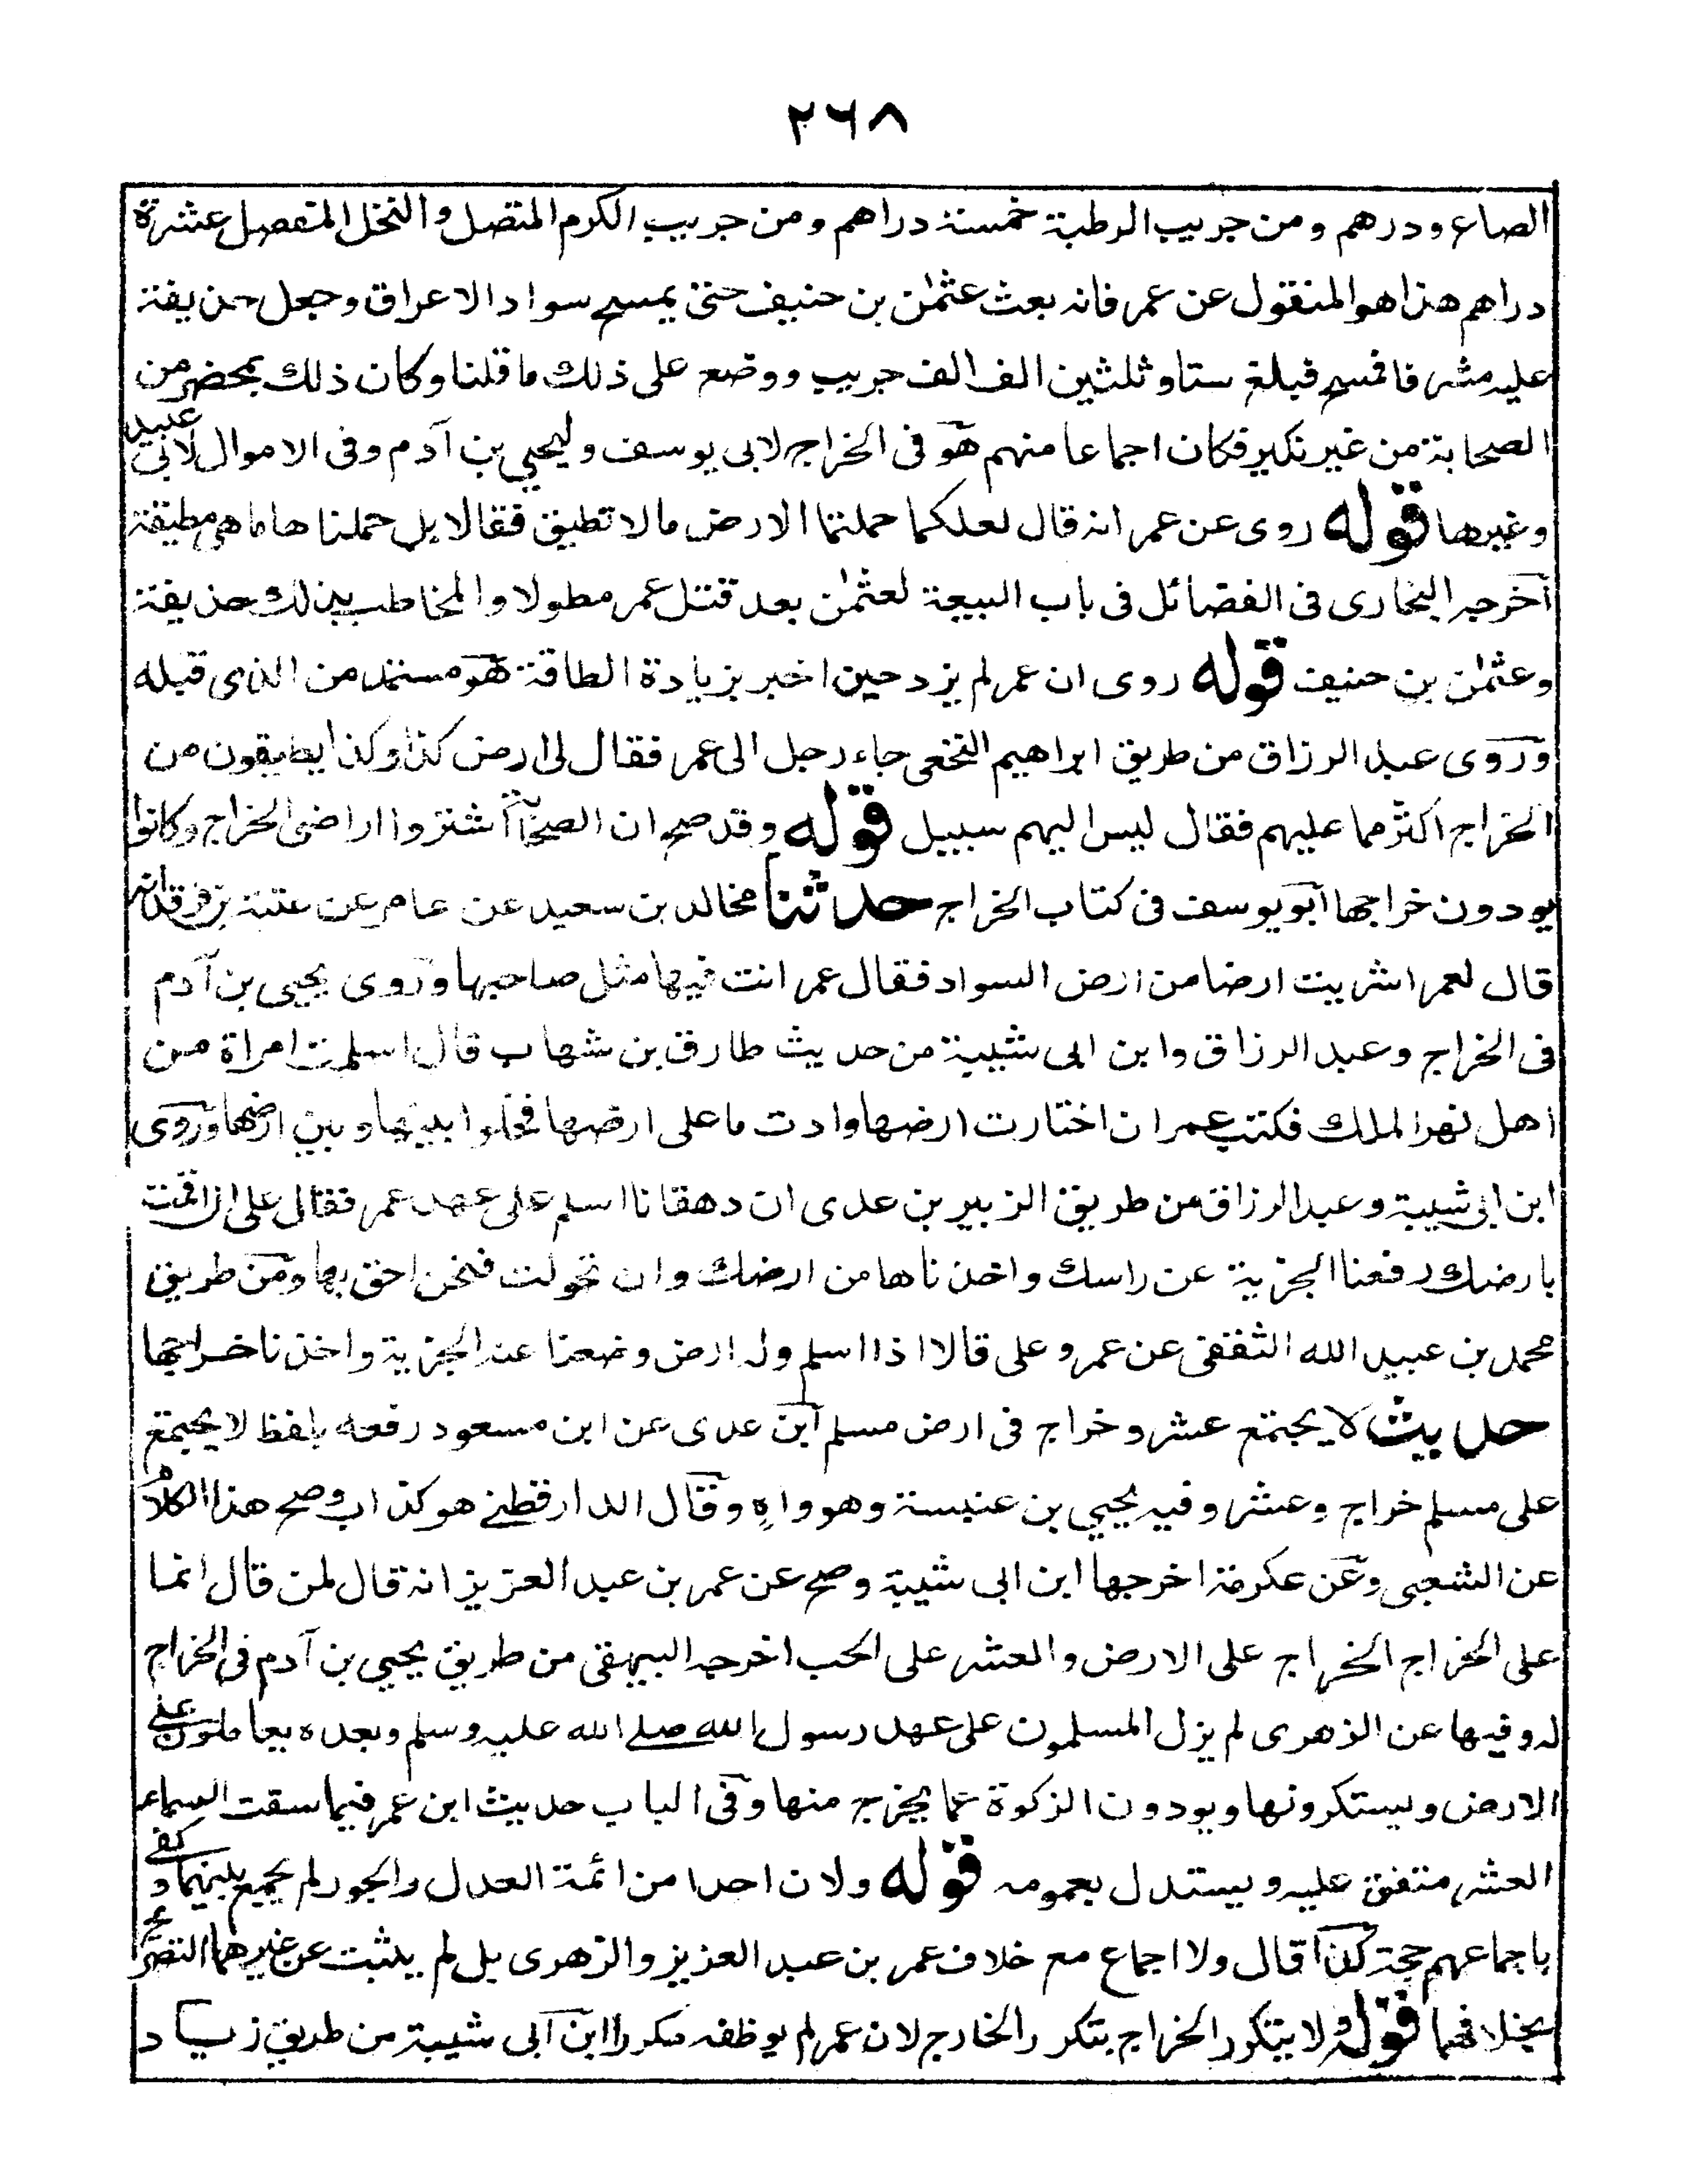 ٢٦٨
الصاع ودرهم ومن جريب الرطبة خمسة دراهم ومن جريب الكرم المتصل والنخل المتصل عشرة
دراهم هذا هو المنقول عن عمر فانه بعث عثمٰن بن حنيف حتى يمسح سواد الاعراق وجعل حذيفة
عليه مشرفا فمسح فبلغ ستا وثلثين الف الف جريب ووضع على ذلك ما قلنا وكان ذلك بمحضر من
الصحابة من غير نكير فكان اجماعا منهم هو فى الخراج لابى يوسف وليحيى بن آدم وفى الاموال لابى عبيد
وغيرها قوله روى عن عمر انه قال لعلكما حملتما الارض مالا تطيق فقالا بل حملنا ها ما هى مطيقة
اخرجه البخارى فى الفضائل فى باب البيعة لعثمٰن بعد قتل عمر مطولا والمخاطب بذلك حذيفة
وعثمٰن بن حنيف قوله روى ان عمر لم يزد حين اخبر بزيادة الطاقة هو مستمد من الذى قبله
وروى عبد الرزاق من طريق ابراهيم النخعى جاء رجل الى عمر فقال لى ارض كذا وكذا يطيقون من
الخراج اكثر مما عليهم فقال ليس اليهم سبيل قوله وقد صح ان الصحابة اشتروا اراضى الخراج وكانوا
يودون خراجها ابو يوسف فى كتاب الخراج حدثنا مخالد بن سعيد عن عامر عن عتبة بن فرقد انه
قال لعمر اشريت ارضا من ارض السواد فقال عمر انت فيها مثل صاحبها وروى يحيى بن آدم
فى الخراج وعبد الرزاق وابن ابى شيبة من حديث طارق بن شهاب قال اسلمت امراة من
اهل نهر الملك فكتب عمر ان اختارت ارضها وادت ما على ارضها فخلوا بينها وبين ارضها وروى
ابن ابى شيبة وعبد الرزاق من طريق الزبير بن عدى ان دهقانا اسلم على عهد عمر فقال على ان اقمت
بارضك رفعنا الجزية عن راسك واخذناها من ارضك وان تحولت فنحن احق بها ومن طريق
محمد بن عبيد الله الثقفى عن عمر وعلى قالا اذا اسلم وله ارض وضعنا عنه الجزية واخذنا خراجها
حديث لا يجتمع عشر وخراج فى ارض مسلم ابن عدى عن ابن مسعود رفعه بلفظ لا يجتمع
على مسلم خراج وعشر وفيه يحيى بن عنبسة وهو واهٍ وقال الدارقطنى هو كذاب وصح هذا الكلام
عن الشعبى وعن عكرمة اخرجها ابن ابى شيبة وصح عن عمر بن عبد العزيز انه قال لمن قال انما
على الخراج الخراج على الارض والعشر على الحب اخرجه البيهقى من طريق يحيى بن آدم فى الخراج
له وفيها عن الزهرى لم يزل المسلمون على عهد رسول الله صلى الله عليه وسلم وبعده يعاملون على
الارض ويستكرونها ويودون الزكوة عما يخرج منها وفى الباب حديث ابن عمر فيما سقت السماء
العشر متفق عليه ويستدل بعمومه قوله ولان احدا من ائمة العدل والجور لم يجمع بينهما وكفى
باجماعهم حجة كذا قال ولا اجماع مع خلاف عمر بن عبد العزيز والزهرى بل لم يثبت عن غيرهما التصريح
بخلافهما قوله ولا يتكرر الخراج بتكرر الخارج لان عمر لم يوظفه مكررا ابن ابى شيبة من طريق زياد